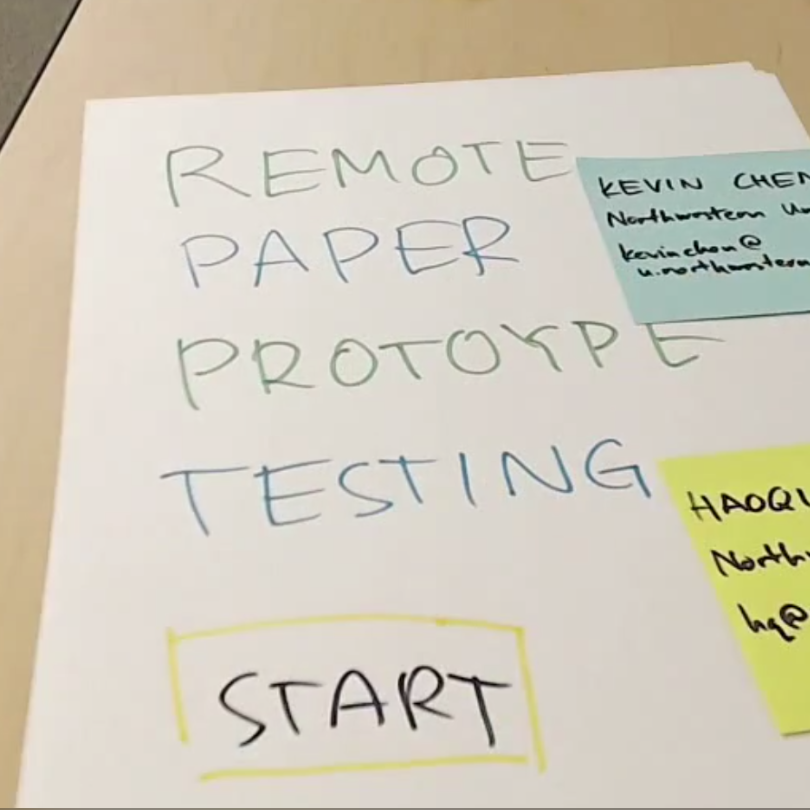 REMOTE
PAPER
PROTOYPE
TESTING
START
KEVIN CHEN
Northwestern
kevinchen@
u.northwestern
HAOQI
hq@